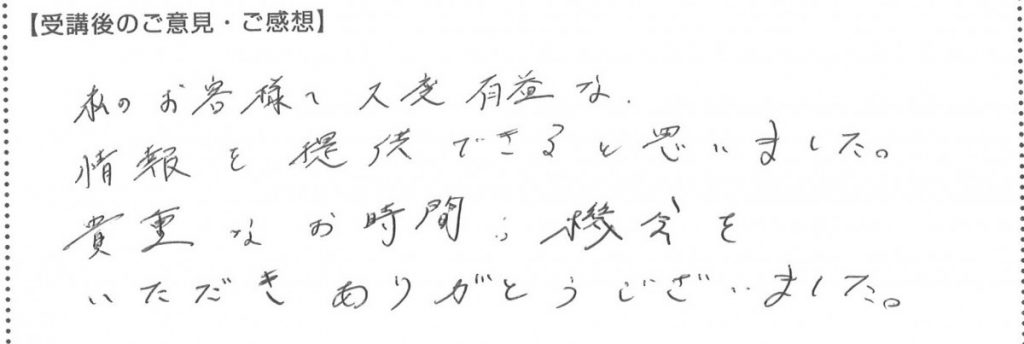 【受講後のご意見・ご感想】
私のお客様へ大変有益な
情報を提供できると思いました。
貴重なお時間、機会を
いただきありがとうございました。